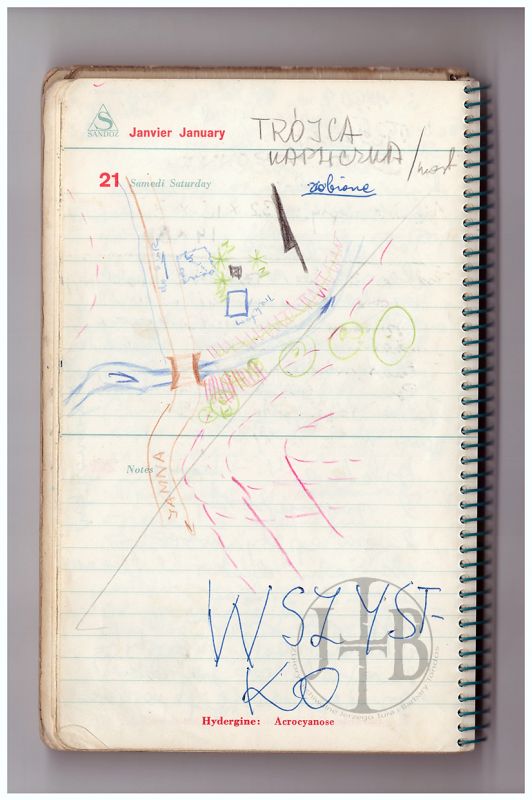 SANDOZ
Janvier January
TRÓJCA
KAPLICZKA / most
21 Samedi Saturday
robione
Notes
JAMNA
WSZYST-
KO
JTB
Hydergine: Acrocyanose